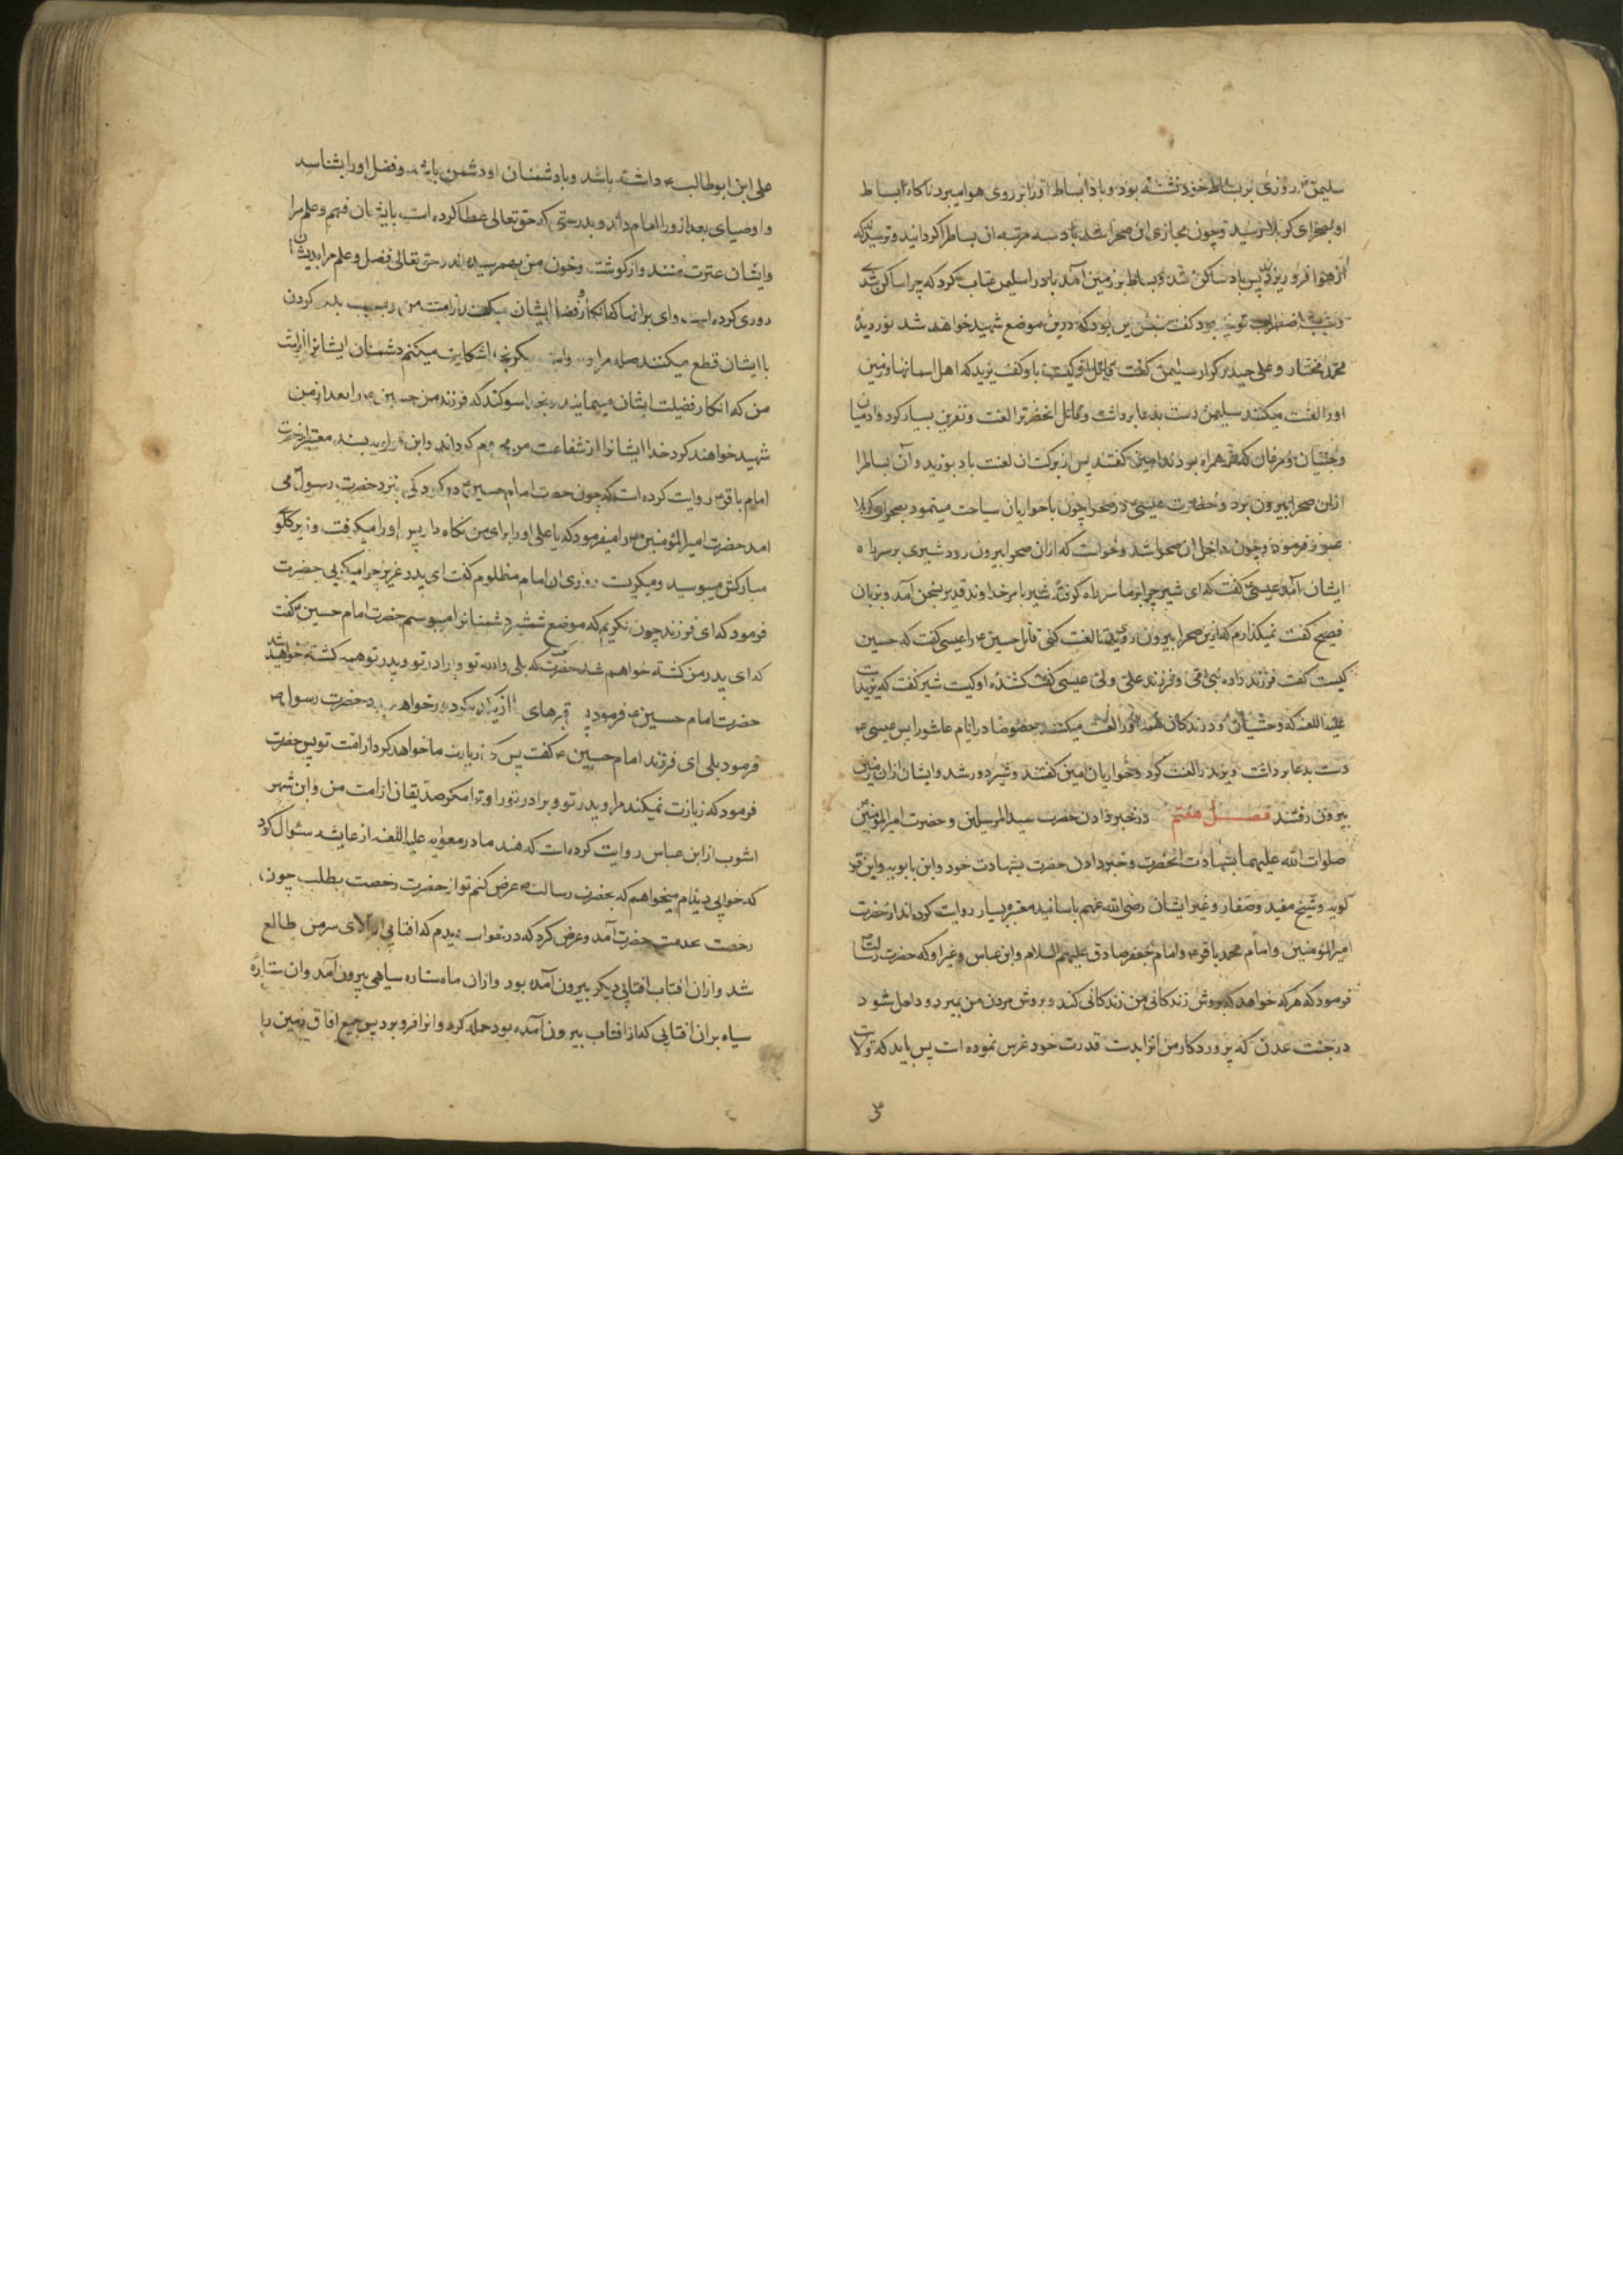 سلیمن ع روزی بر بساط خود نشسته بود و باد بساط اورا بر روی هوا میبرد ناکاه بساط
او بصحرای کربلا رسید و چون محاذی ان صحرا شد باد سه مرتبه ان بساط را کردانید و ترسیدند که
از هوا فرو ریزد پس باد ساکن شد و بساط بر زمین آمد باد را سلیمن عتاب کرد که چرا ساکن شدی
و سبب اضطراب تو چه بود کفت سببش این بود که درین موضع شهید خواهد شد نور دیدۀ
محمد مختار و علی حیدر کرار سلیمن کفت قاتل او کیست باد کفت یزید که اهل اسمانها و زمین
اورا لعنت میکنند سلیمن دست بدعا برداشت و قاتل انحضرترا لعنت و نفرین بسیار کرد و ادمیان
و جنیان و مرغان که همراه بودند امین کفتند پس از برکت ان لعنت باد بوزید و آن بساطرا
ازان صحرا بیرون برد و حضرت عیسی ع در صحرا چون با حواریان سیاحت مینمود بصحرای کربلا
عبور فرمود و چون داخل ان صحرا شد و خواست که ازان صحرا بیرون رود شیری بر سر راه
ایشان آمد عیسی ع کفت که ای شیر چرا بر ما سر راه کرفتۀ شیر بامر خداوند قدیر بسخن آمد و بزبان
فصیح کفت نمیکذارم که ازین صحرا بیرون روی تا لعنت کنی قاتل حسین ع را عیسی کفت که حسین
کیست کفت فرزند زاده نبی امی و فرزند علی ولی عیسی کفت کشندۀ او کیست شیر کفت که یزید است
علیه اللعنه که وحشیان و درندکان همه اورا لعنت میکنند خصوصا در ایام عاشورا پس عیسی ع
دست بدعا برداشت و یزید را لعنت کرد و حواریان امین کفتند و شیر دور شد و ایشان ازان زمین
بیرون رفتند فصل هفتم در خبر دادن حضرت سید المرسلین و حضرت امیر المؤمنین
صلوات الله علیهما بشهادت انحضرت و خبر دادن حضرت بشهادت خود و ابن بابویه و ابن قو
لویه و شیخ مفید و صفار و غیر ایشان رضی الله عنهم باسانید معتبره بسیار روایت کرده اند از حضرت
امیر المؤمنین و امام محمد باقر ع و امام جعفر صادق علیهم السلام و ابن عباس و غیر او که حضرت رسالت ص
فرمود که هرکه خواهد که بروش زندکانی من زندکانی کند و بروش مردن من بمیرد و داخل شود
در جنت عدن که پروردکار من انرا بدست قدرت خود غرس نموده است پس باید که ولایت
علی ابن ابوطالب ع داشته باشد و با دشمنان او دشمن باشد و فضل اورا بشناسد
و اوصیای بعد از ورا امام داند و بدرستی که حق تعالی عطا کرده است بایشان فهم و علم مرا
و ایشان عترت منند و از کوشت و خون من بهم رسیده اند حق تعالی فضل و علم مرا بدیشان
روزی کرده است وای بر انها که انکار فضل ایشان میکنند از امت من و بسبب بد کردن
با ایشان قطع میکنند صله مرا شکایت میکنم دشمنان ایشانرا از امت
من که انکار فضیلت ایشان مینمایند بخدا سوکند که فرزند من حسین ع را بعد از من
شهید خواهند کرد خدا ایشانرا از شفاعت من محروم کرداند و ابن قولویه بسند معتبر از حضرت
امام باقر ع روایت کرده است که چون حضرت امام حسین ع در کودکی بنزد حضرت رسول ص می
امد حضرت امیر المؤمنین ع را میفرمود که یا علی اورا برای من نکاه دار پس اورا میکرفت و زیر کلوی
مبارکش میبوسید و میکریست روزی ان امام مظلوم کفت ای پدر عزیز چرا میکریی حضرت
فرمود که ای فرزند چون نکریم که موضع شمشیر دشمنانرا میبوسم حضرت امام حسین ع کفت
که ای پدر من کشته خواهم شد حضرت کفت بلی والله تو و برادر تو و پدر تو همه کشته خواهید شد
حضرت امام حسین ع فرمود قبرهای ما از یکدیکر دور خواهد بود حضرت رسول ص
فرمود بلی ای فرزند امام حسین ع کفت پس که زیارت ما خواهد کرد از امت تو پس حضرت
فرمود که زیارت نمیکند مرا و پدر تو و برادر تورا و ترا مکر صدیقان از امت من و ابن شهر
اشوب از ابن عباس روایت کرده است که هند مادر معویه علیه اللعنه از عایشه سئوال کرد
که خوابی دیده‌ام میخواهم که بحضرت رسالت ص عرض کنم تو از حضرت رخصت بطلب چون
رخصت بخدمت حضرت آمد و عرض کرد که در خواب دیدم که افتابی از بالای سر من طالع
شد و ازان افتاب افتابی دیکر بیرون آمده بود و ازان ماه ستاره سیاهی بیرون آمد و ان ستارۀ
سیاه بران افتابی که از افتاب بیرون آمده بود حمله کرد و انرا فرو برد پس جمیع افاق زمین را